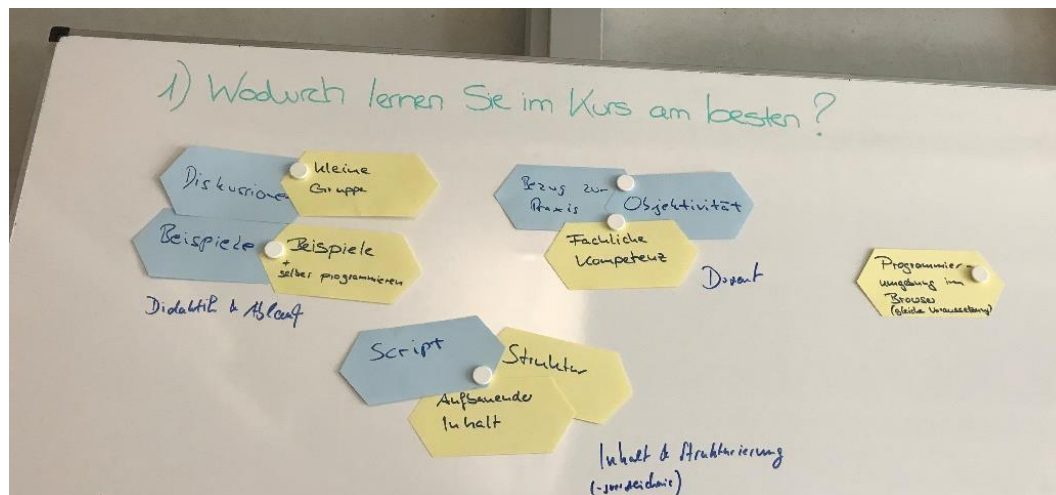 1) Wodurch lernen Sie im Kurs am besten?
Diskussionen
kleine
Gruppe
Beispiele
Beispiele
+
selber programmieren
Didaktik & Ablauf
Bezug zur
Praxis
Objektivität
Fachliche
Kompetenz
Dozent
Programmier
umgebung im
Browser
(gleiche Voraussetzung)
Script
Struktur
Aufbauender
Inhalt
Inhalt & Strukturierung